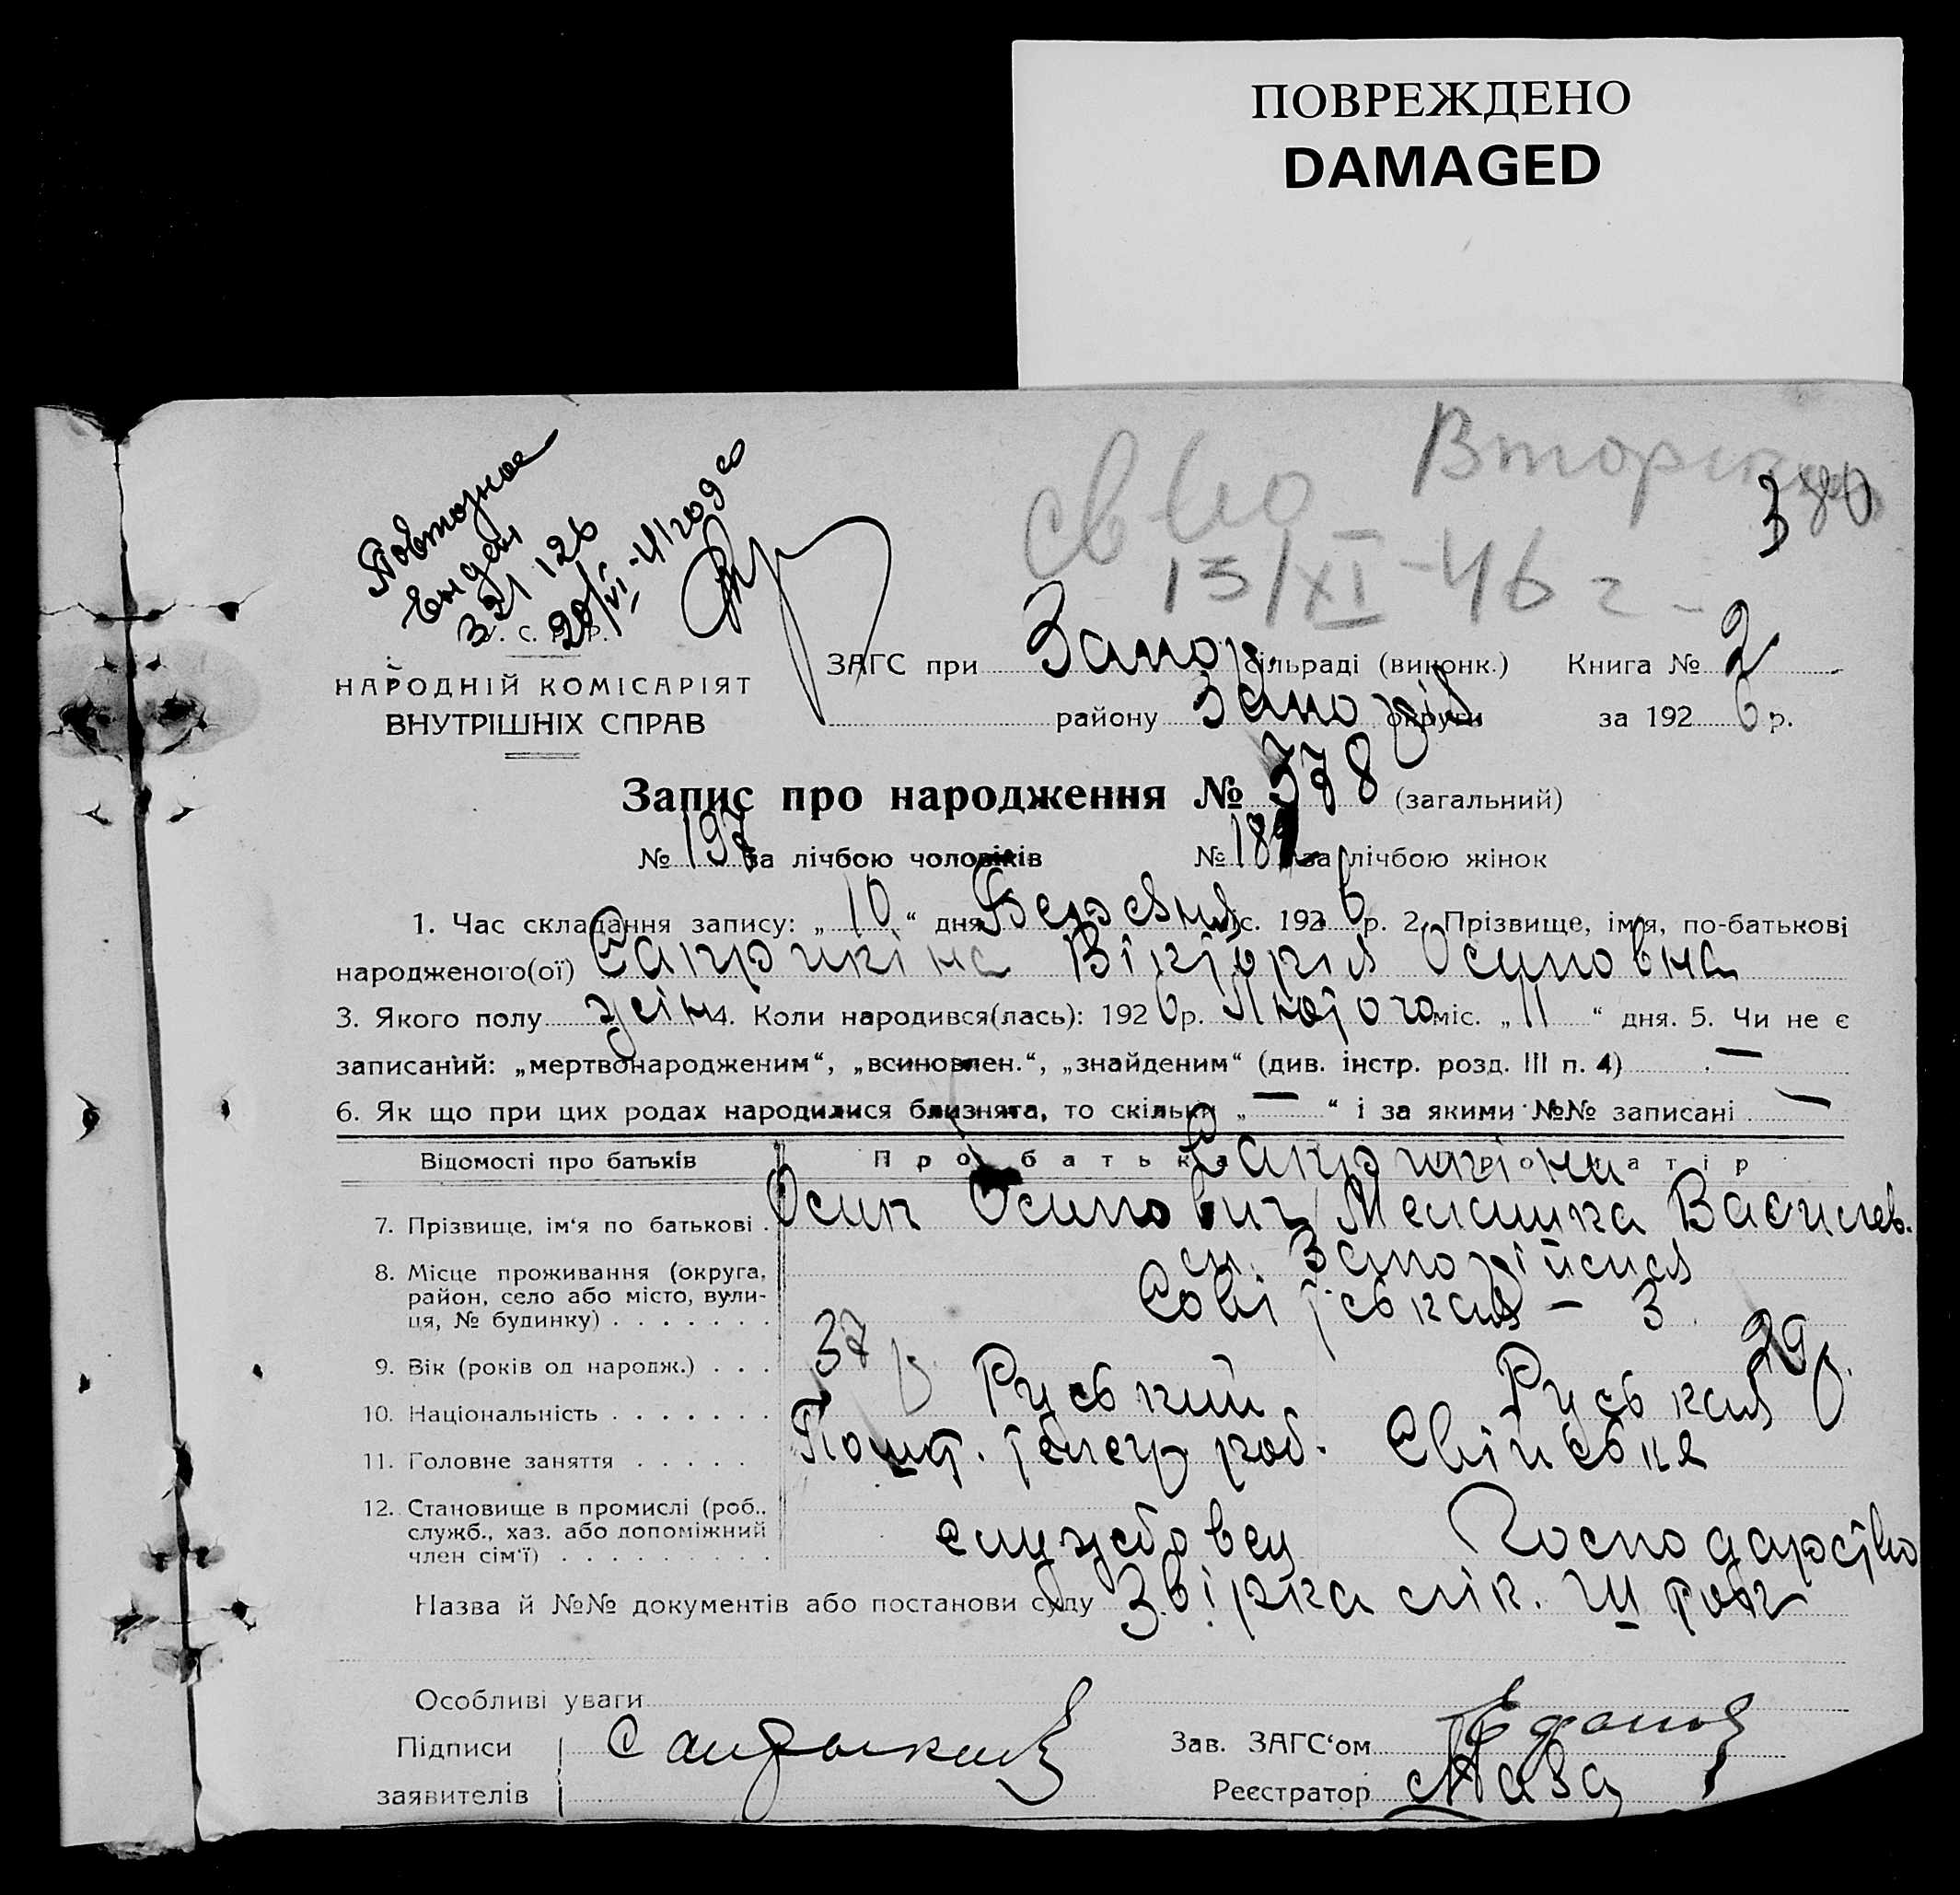 ПОВРЕЖДЕНО
DAMAGED
Вторично
св во
380
13/XI-46 г -
Повторное
выдан
126
20/VI-41 года
У. С. Р. Р.
НАРОДНІЙ КОМІСАРІЯТ
ВНУТРІШНІХ СПРАВ
ЗАГС при Запор. сільраді (виконк.) Книга № 2
району Запоріз округи за 1926 р.
Запис про народження № 378 (загальний)
№ 197 за лічбою чоловіків № 181 за лічбою жінок
1. Час складання запису: „10“ дня Березня міс. 1926 р. 2. Прізвище, ім'я, по-батькові
народженого(ої) Саприкіна Вікторія Осиповна
3. Якого полу жін 4. Коли народився(лась): 1926 р. Лютого міс. „11“ дня. 5. Чи не є
записаний: „мертвонародженим“, „всиновлен.“, „знайденим“ (див. інстр. розд. III п. 4) —
6. Як що при цих родах народилися близнята, то скільки „—“ і за якими №№ записані —
Відомості про батьків Про батька Про матір
Саприкіни
7. Прізвище, ім‘я по батькові Осип Осипович Мелашка Василев.
8. Місце проживання (округа, район, село або місто, вулиця, № будинку) ст. Запоріжжя
Совітськая – 3
9. Вік (років од народж.) 37 р. 29 р.
10. Національність Руський Руськая
11. Головне заняття Пошт. телегр роб. Свійське
12. Становище в промислі (роб., служб., хаз. або допоміжний член сім'ї) службовец Господарство
Назва й №№ документів або постанови суду Звірка лік. III робл
Особливі уваги
Підписи Сапрыкин Зав. ЗАГС‘ом
заявителів Реєстратор